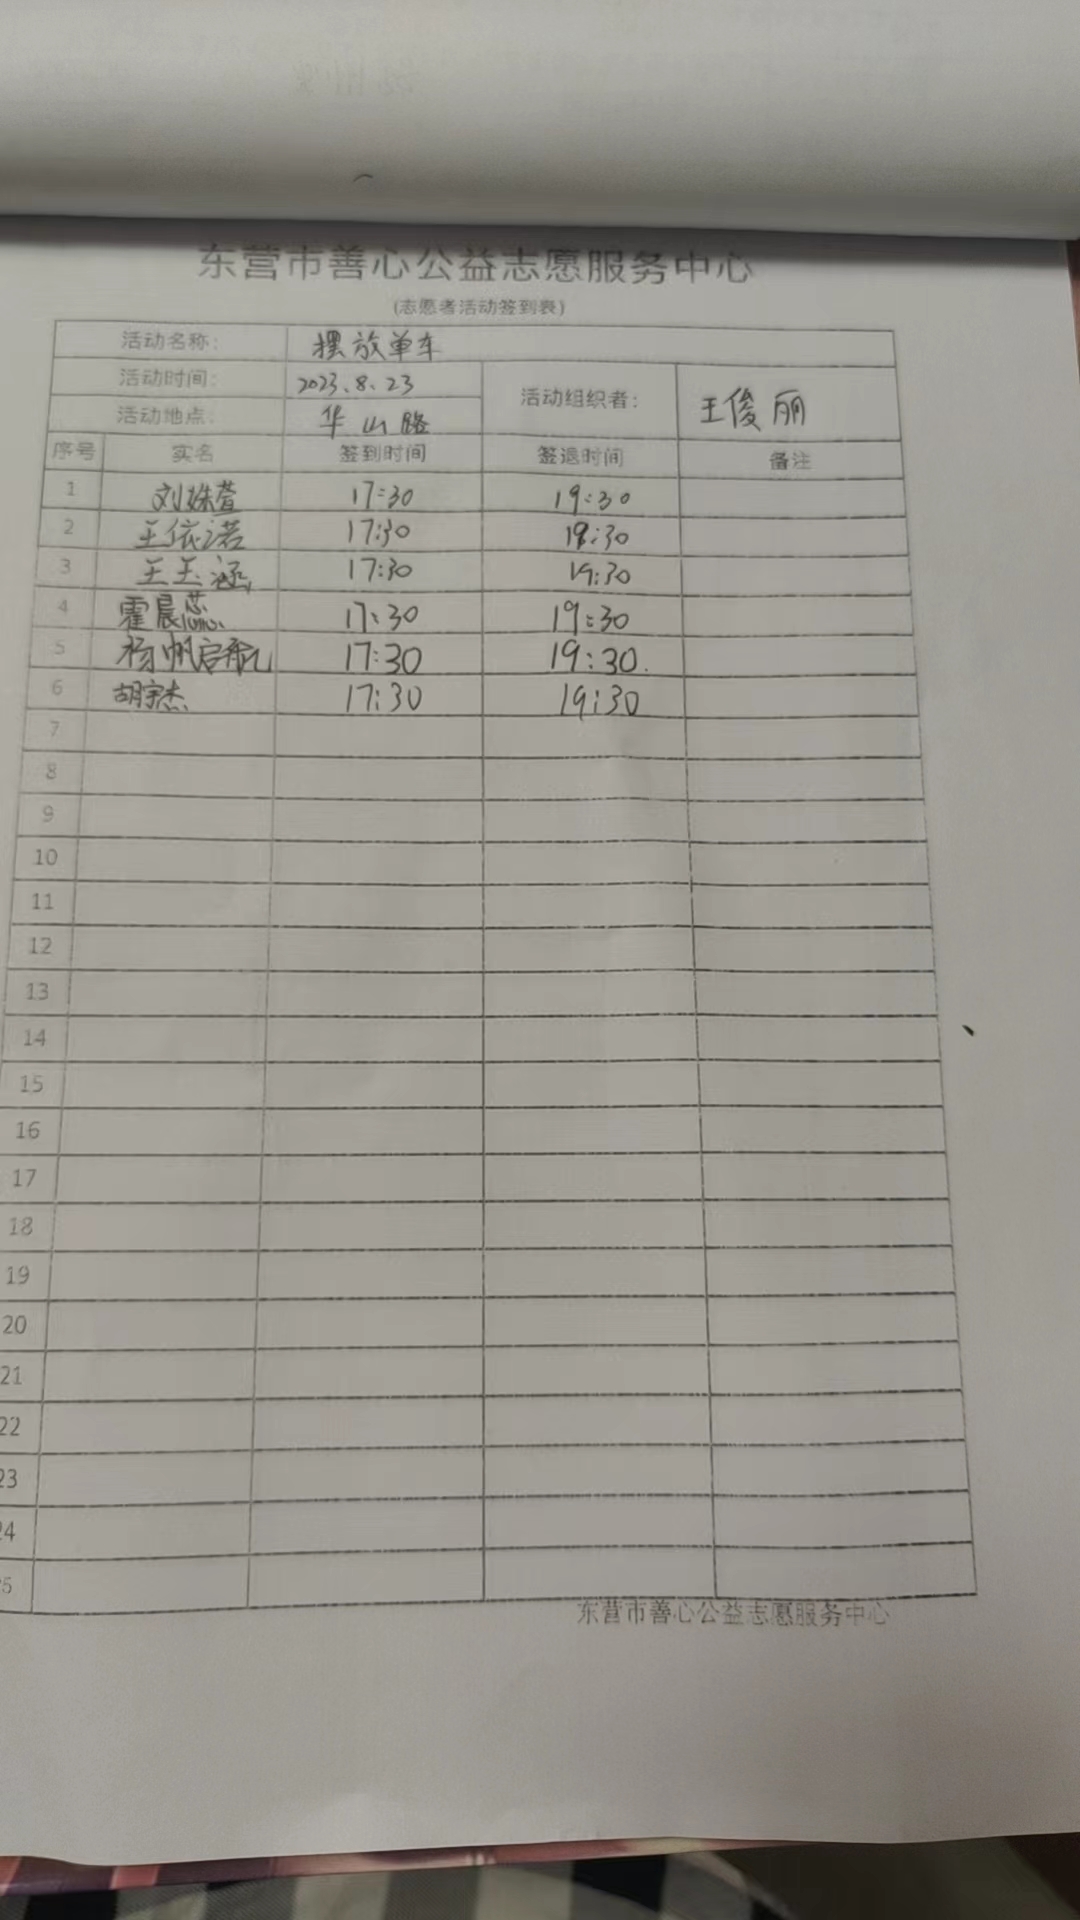 东营市善心公益志愿服务中心
(志愿者活动签到表)
活动名称: 摆放单车
活动时间: 2023.8.23 活动组织者: 王俊丽
活动地点: 华山路
序号 实名 签到时间 签退时间 备注
1 刘姝萱 17:30 19:30
2 王依诺 17:30 18:30
3 王玉涵 17:30 19:30
4 霍晨蕊 17:30 19:30
5 杨帆启航 17:30 19:30.
6 胡宇杰 17:30 19:30
7
8
9
10
11
12
13
14
15
16
17
18
19
20
21
22
23
24
25
东营市善心公益志愿服务中心